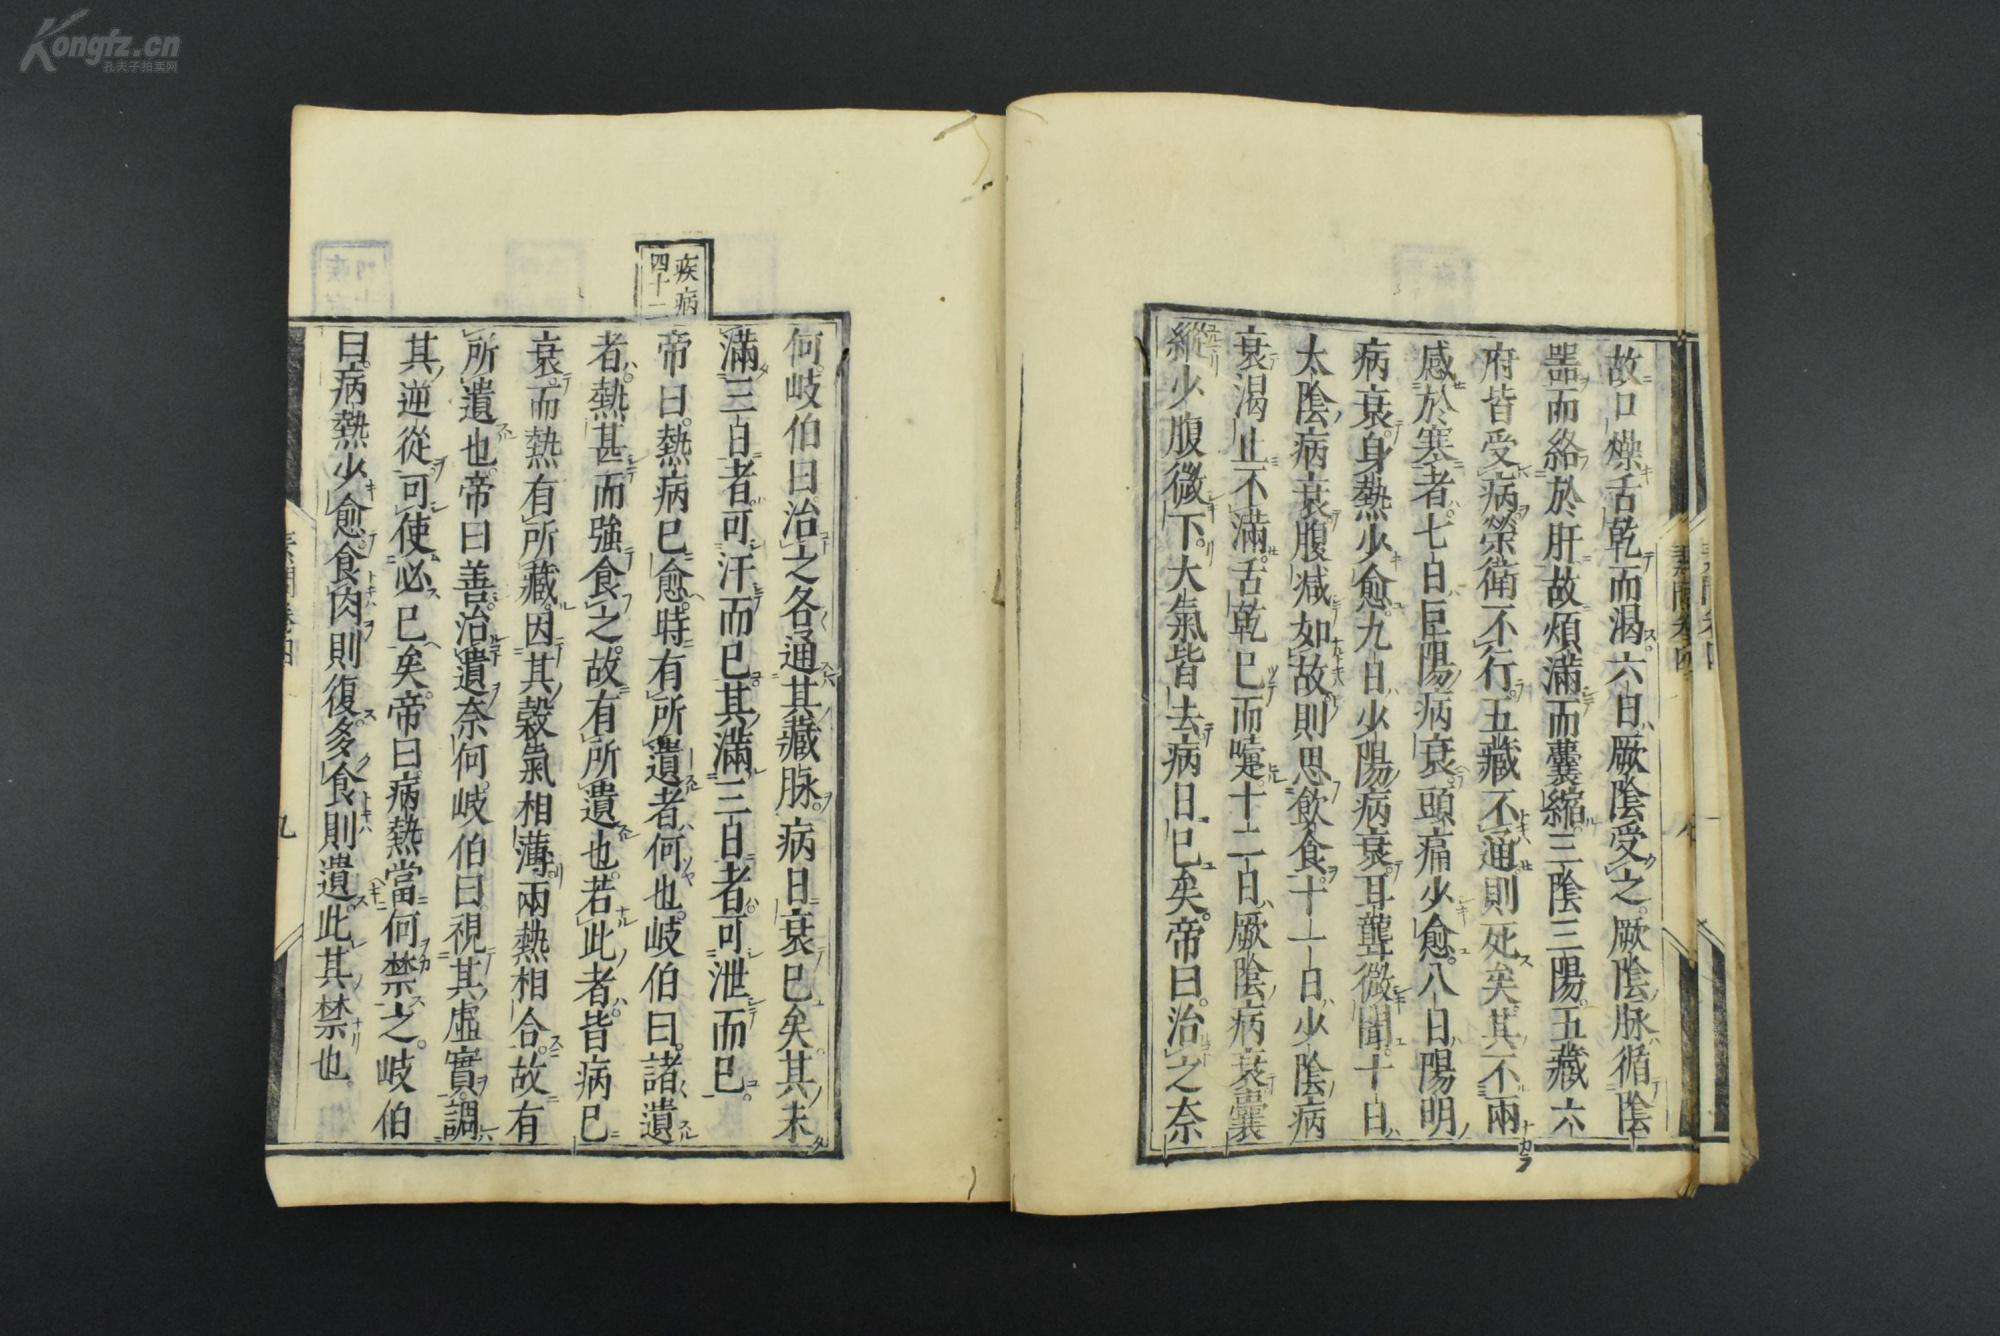 Kongfz.cn
孔夫子拍卖网
故口燥舌乾而渴六日厥陰受之。厥陰脉循陰
器而絡於肝故煩滿而囊縮三陰三陽五藏六
府皆受病榮衛不行五藏不通則死矣其不兩
感於寒者七日巨陽病衰頭痛少愈八日陽明
病衰身熱少愈九日少陽病衰耳聾微聞十日
太陰病衰腹減如故則思飲食十一日少陰病
衰渴止不滿舌乾已而嚏十二日厥陰病衰囊
縱少腹微下大氣皆去病日已矣帝曰治之奈
疾病
四十二
何岐伯曰治之各通其藏脉病日衰已矣其未
滿三日者可汗而已其滿三日者可泄而已
帝曰熱病已愈時有所遺者何也岐伯曰諸遺
者熱甚而強食之故有所遺也若此者皆病已
衰而熱有所藏因其穀氣相薄兩熱相合故有
所遺也帝曰善治遺奈何岐伯曰視其虛實調
其逆從可使必已矣帝曰病熱當何禁之。岐伯
曰病熱少愈食肉則復多食則遺此其禁也
九